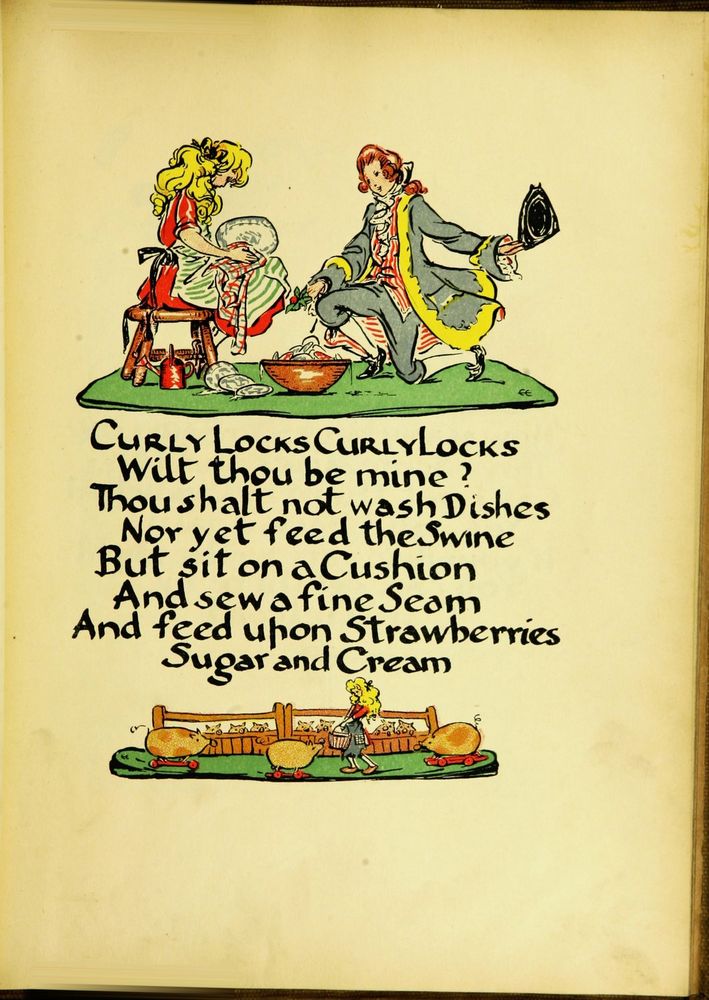 CURLY LOCKS CURLY LOCKS
Wilt thou be mine ?
Thou shalt not wash Dishes
Nor yet feed the Swine
But sit on a Cushion
And sew a fine Seam
And feed upon Strawberries
Sugar and Cream